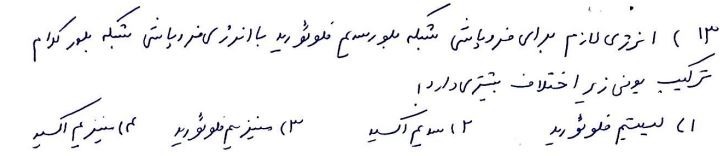 ۱۳) انرژی لازم برای فروپاشی شبکه بلور سدیم فلوئورید با انرژی فروپاشی شبکه بلور کدام
ترکیب یونی زیر اختلاف بیشتری دارد؟
۱) لیتیم فلوئورید ۲) سدیم اکسید ۳) منیزیم فلوئورید ۴) منیزیم اکسید